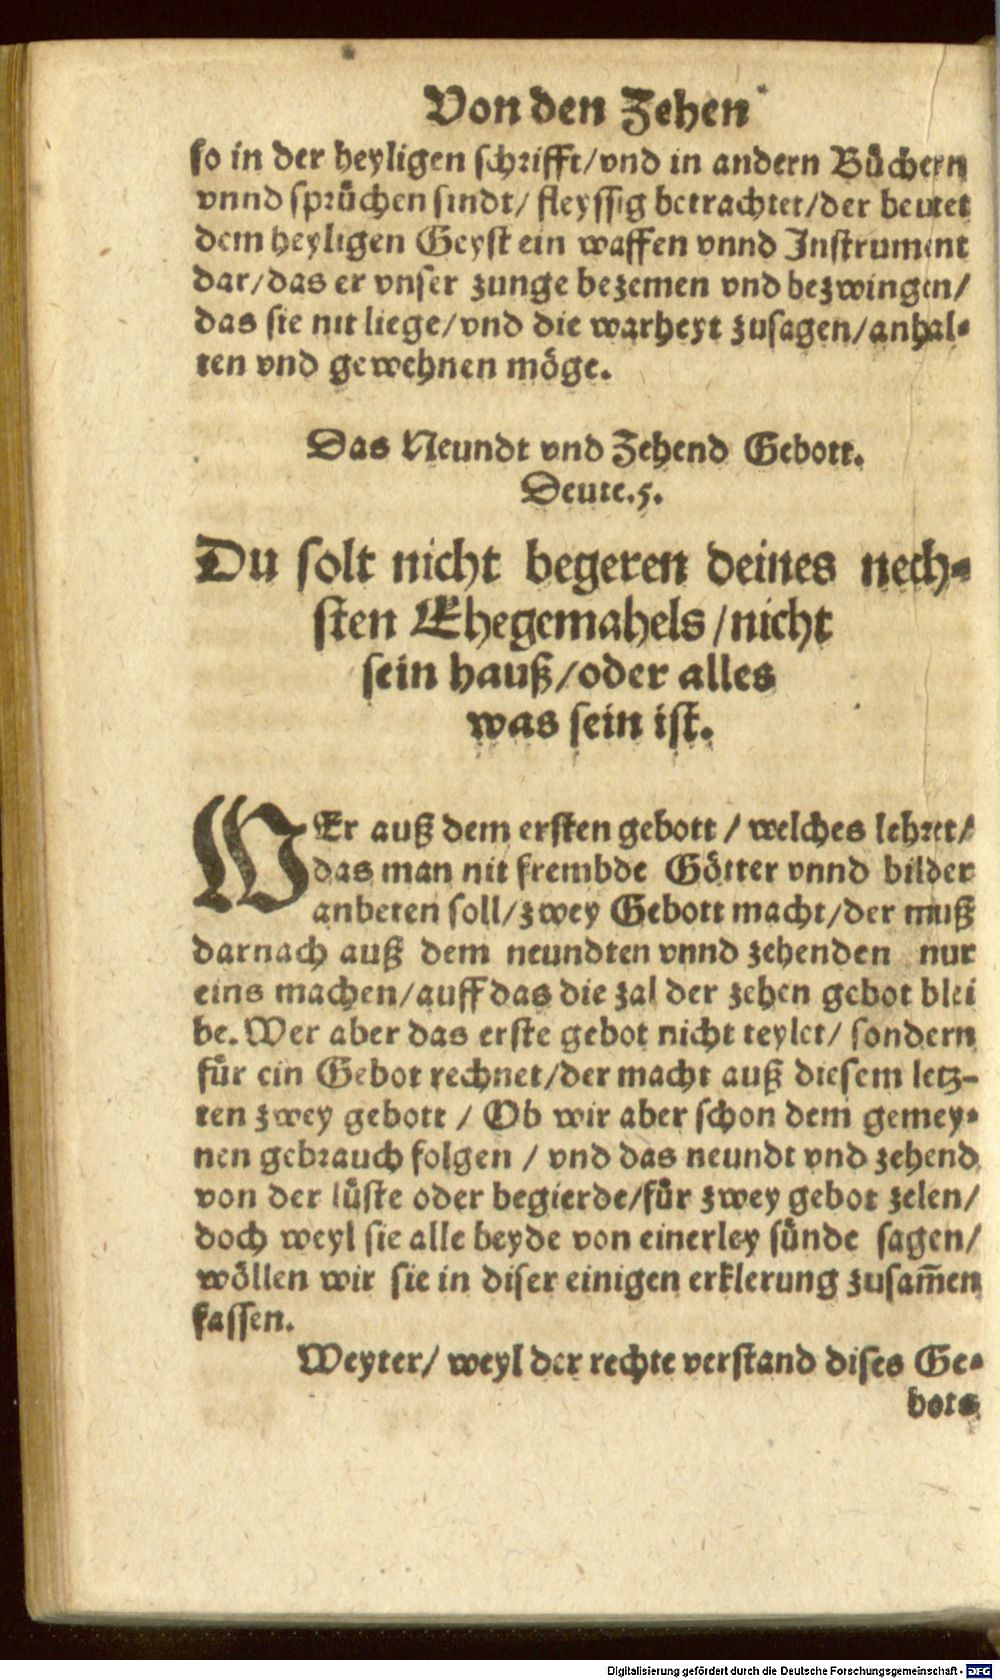 Von den Zehen
so in der heyligen schrifft/vnd in andern Büchern
vnnd sprüchen sindt/ fleyssig betrachtet/der beutet
dem heyligen Geyst ein waffen vnnd Instrument
dar/das er vnser zunge bezemen vnd bezwingen/
das sie nit liege/vnd die warheyt zusagen/anhal-
ten vnd gewehnen möge.
Das Neundt vnd Zehend Gebott.
Deute.5.
Du solt nicht begeren deines nech-
sten Ehegemahels/nicht
sein hauß/oder alles
was sein ist.
WEr auß dem ersten gebott/ welches lehret/
das man nit frembde Götter vnnd bilder
anbeten soll/zwey Gebott macht/der muß
darnach auß dem neundten vnnd zehenden nur
eins machen/auff das die zal der zehen gebot blei
be. Wer aber das erste gebot nicht teylet/ sondern
für ein Gebot rechnet/der macht auß diesem letz-
ten zwey gebott / Ob wir aber schon dem gemey-
nen gebrauch folgen / vnd das neundt vnd zehend
von der lüste oder begierde/für zwey gebot zelen/
doch weyl sie alle beyde von einerley sünde sagen/
wöllen wir sie in diser einigen erklerung zusam̄en
fassen.
Weyter/ weyl der rechte verstand dises Ge-
bots
Digitalisierung gefördert durch die Deutsche Forschungsgemeinschaft - DFG